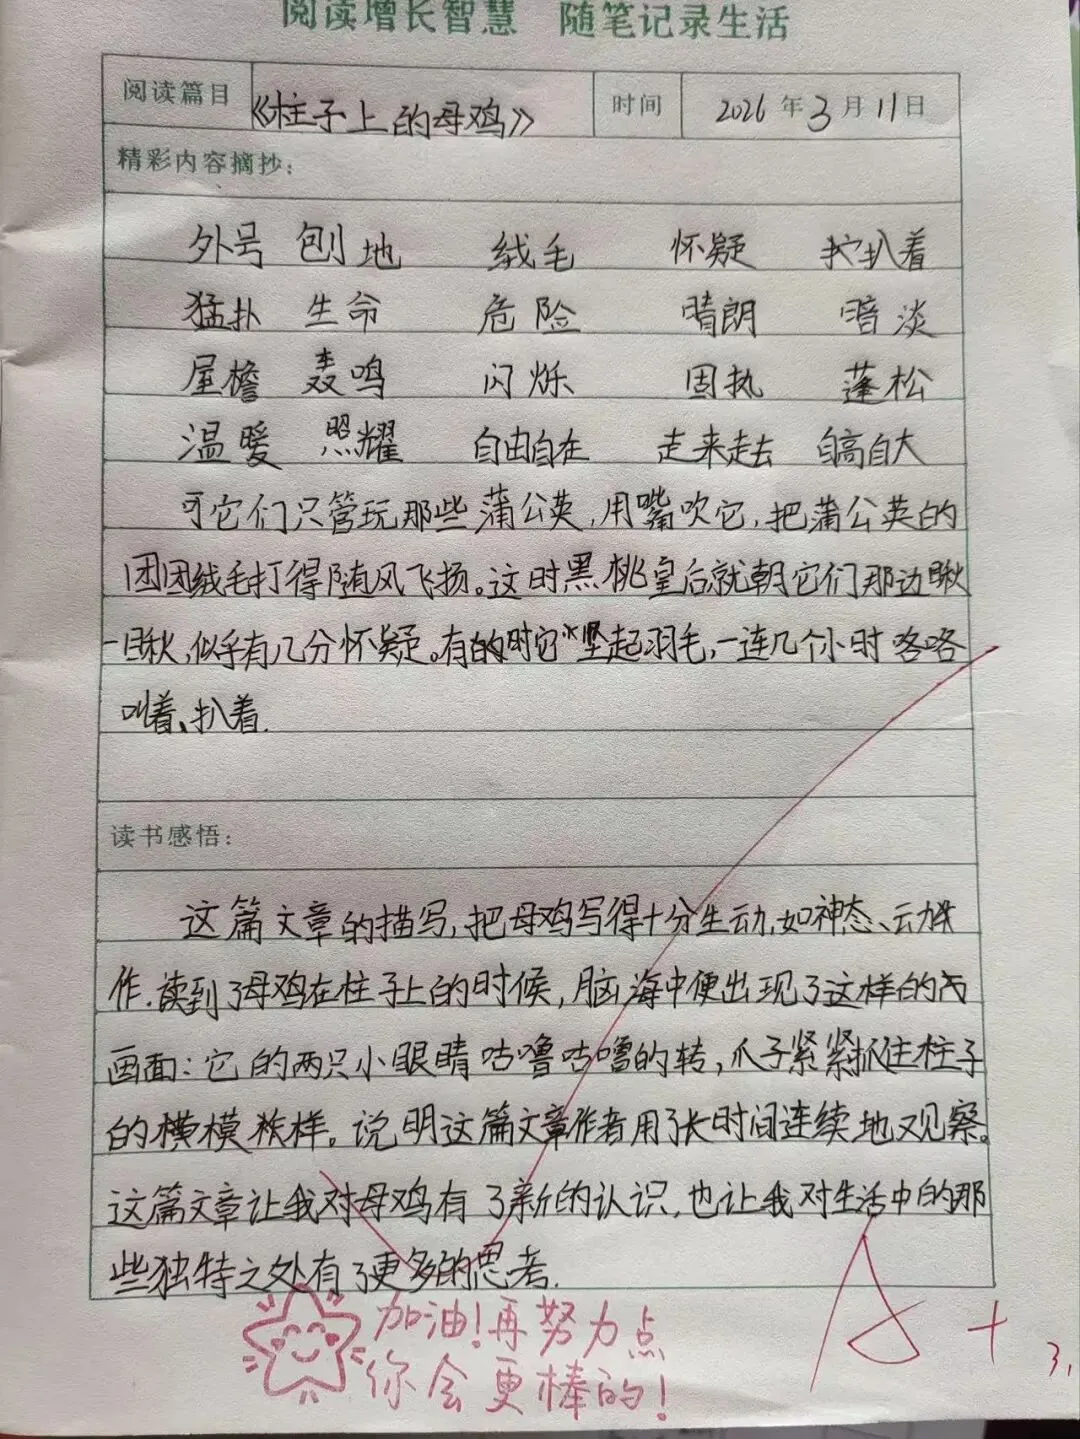 阅读增长智慧 随笔记录生活
阅读篇目 《柱子上的母鸡》 时间 2026年3月11日
精彩内容摘抄：
外号 刨地 绒毛 怀疑 拧扒着
猛扑 生命 危险 晴朗 暗淡
屋檐 轰鸣 闪烁 固执 蓬松
温暖 照耀 自由自在 走来走去 自高自大
可它们只管玩那些蒲公英,用嘴吹它,把蒲公英的
团团绒毛打得随风飞扬。这时黑桃皇后就朝它们那边瞅
一瞅,似乎有几分怀疑。有的时它竖起羽毛,一连几个小时咯咯
叫着、扒着.
读书感悟：
这篇文章的描写,把母鸡写得十分生动,如神态、动
作.读到了母鸡在柱子上的时候,脑海中便出现了这样的
画面:它的两只小眼睛咕噜咕噜的转,爪子紧紧抓住柱子
的模样。说明这篇文章作者用了长时间连续地观察。
这篇文章让我对母鸡有了新的认识,也让我对生活中的那
些独特之处有了更多的思考.
加油!再努力点
你会更棒的!
A+
3.